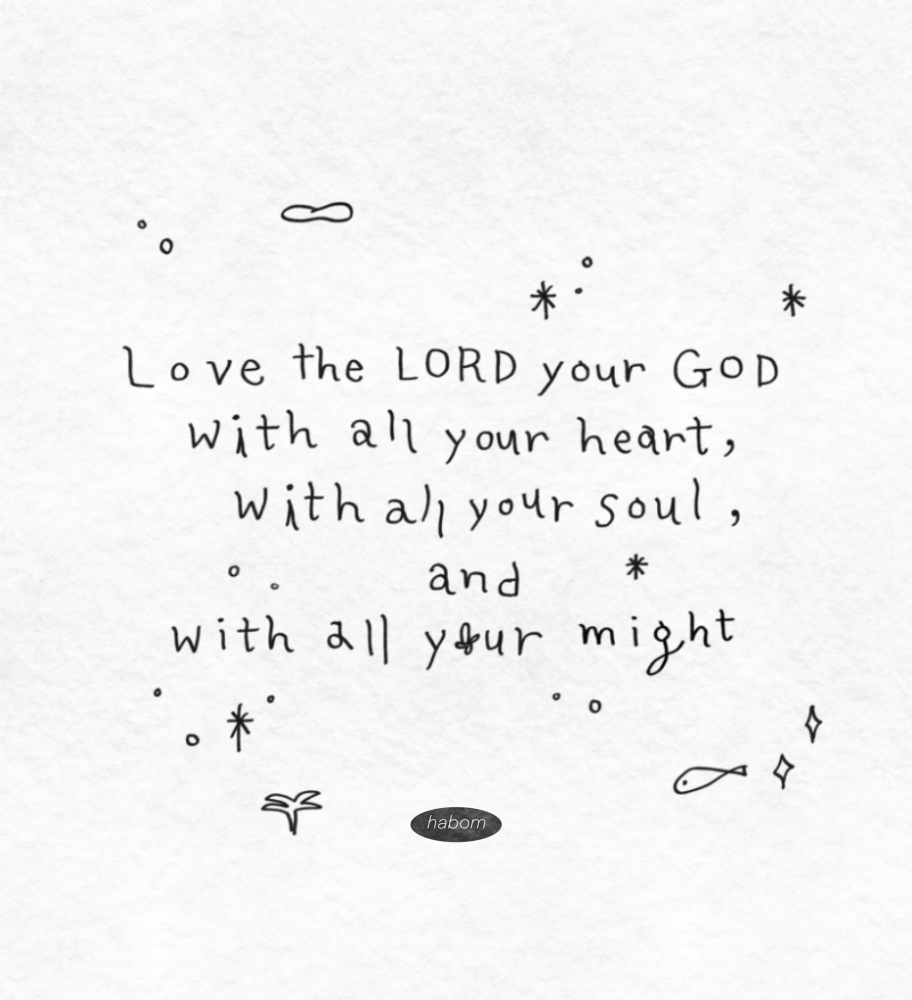 Love the LORD your GOD
with all your heart,
with all your soul,
and
with all your might
habom